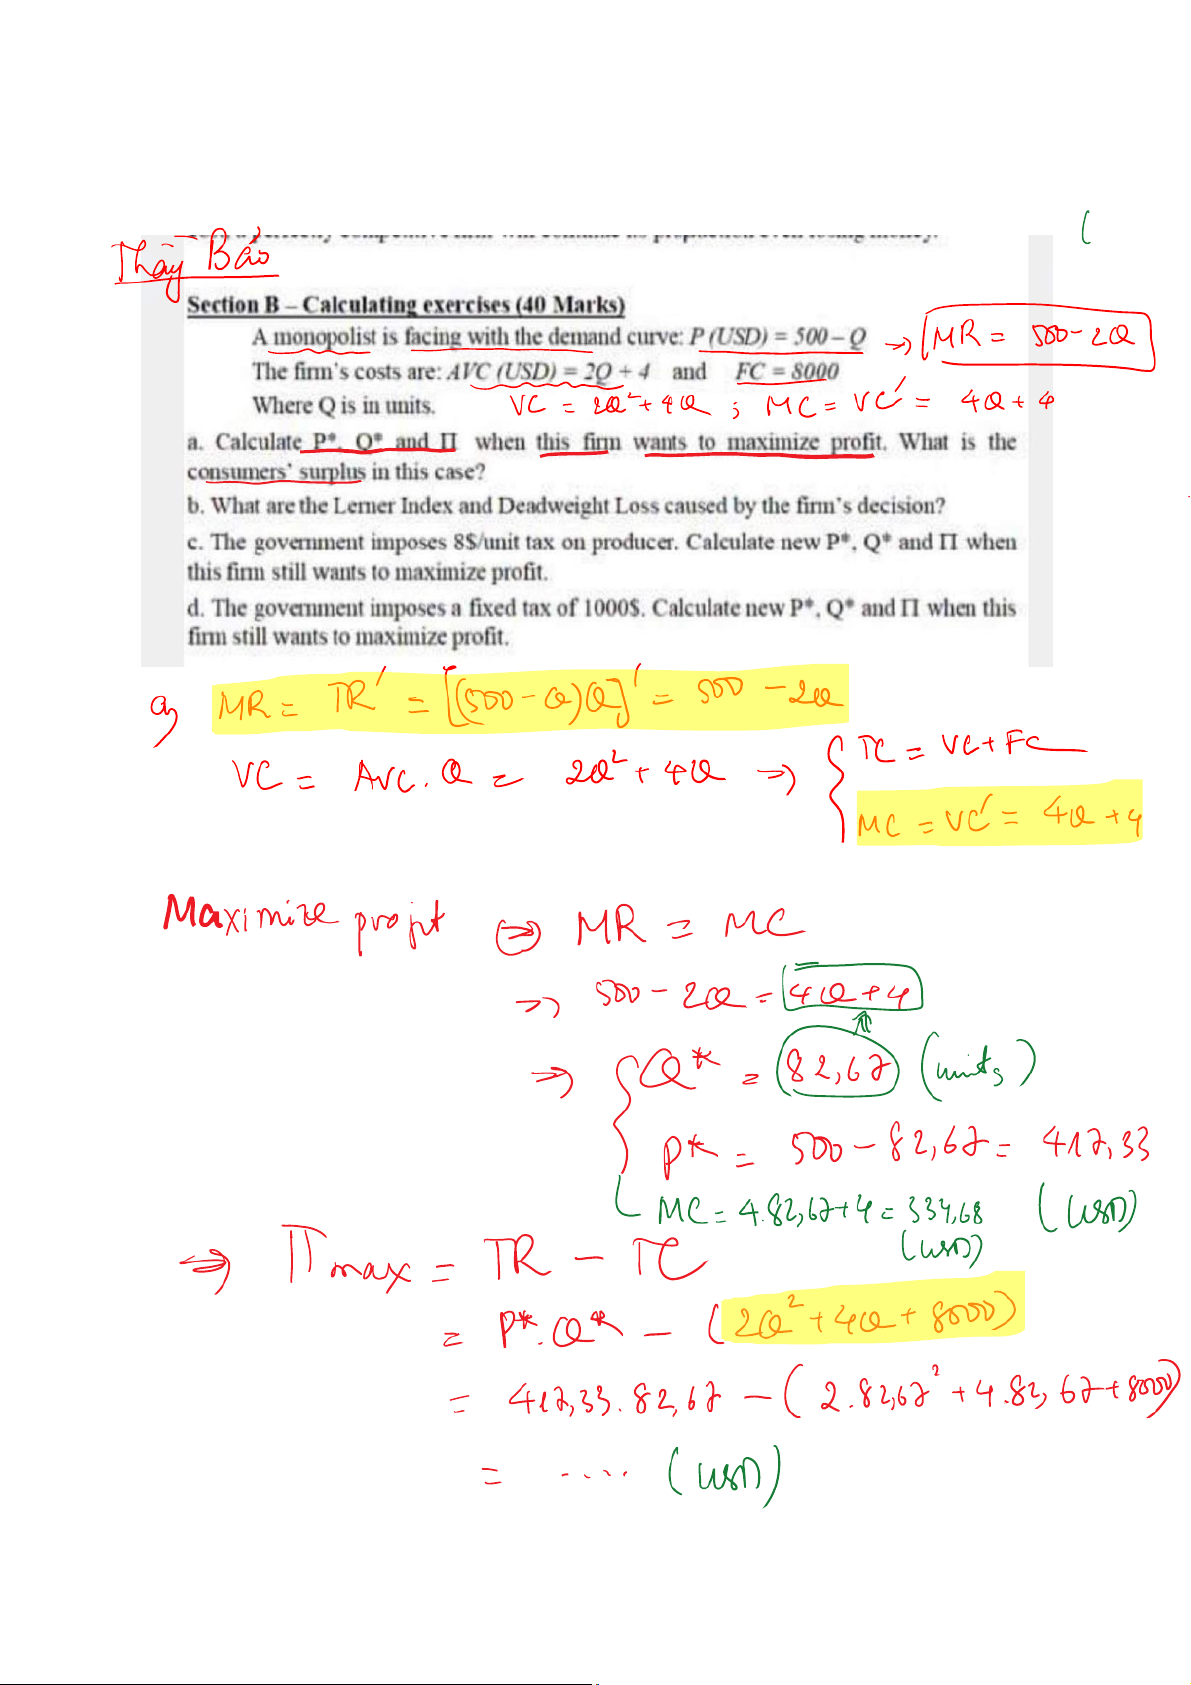 Thầy Bảo
(
Section B – Calculating exercises (40 Marks)
A monopolist is facing with the demand curve: P (USD) = 500 – Q => MR = 500 - 2Q
The firm's costs are: AVC (USD) = 2Q + 4 and FC = 8000
Where Q is in units. VC = 2Q² + 4Q ; MC = VC' = 4Q + 4
a. Calculate P*, Q* and Π when this firm wants to maximize profit. What is the
consumers' surplus in this case?
b. What are the Lerner Index and Deadweight Loss caused by the firm's decision?
c. The government imposes 8$/unit tax on producer. Calculate new P*, Q* and Π when
this firm still wants to maximize profit.
d. The government imposes a fixed tax of 1000$. Calculate new P*, Q* and Π when this
firm still wants to maximize profit.
a) MR = TR' = [(500 - Q)Q]' = 500 - 2Q
VC = AVC.Q = 2Q² + 4Q => { TC = VC + FC
MC = VC' = 4Q + 4
Maximize profit <=> MR = MC
=> 500 - 2Q = 4Q + 4
=> { Q* = 82,67 (units)
P* = 500 - 82,67 = 417,33
(USD)
MC = 4.82,67 + 4 = 334,68
(USD)
=> Πmax = TR - TC
= P*.Q* - (2Q² + 4Q + 8000)
= 417,33.82,67 - (2.82,67² + 4.82,67 + 8000)
= ..... (USD)